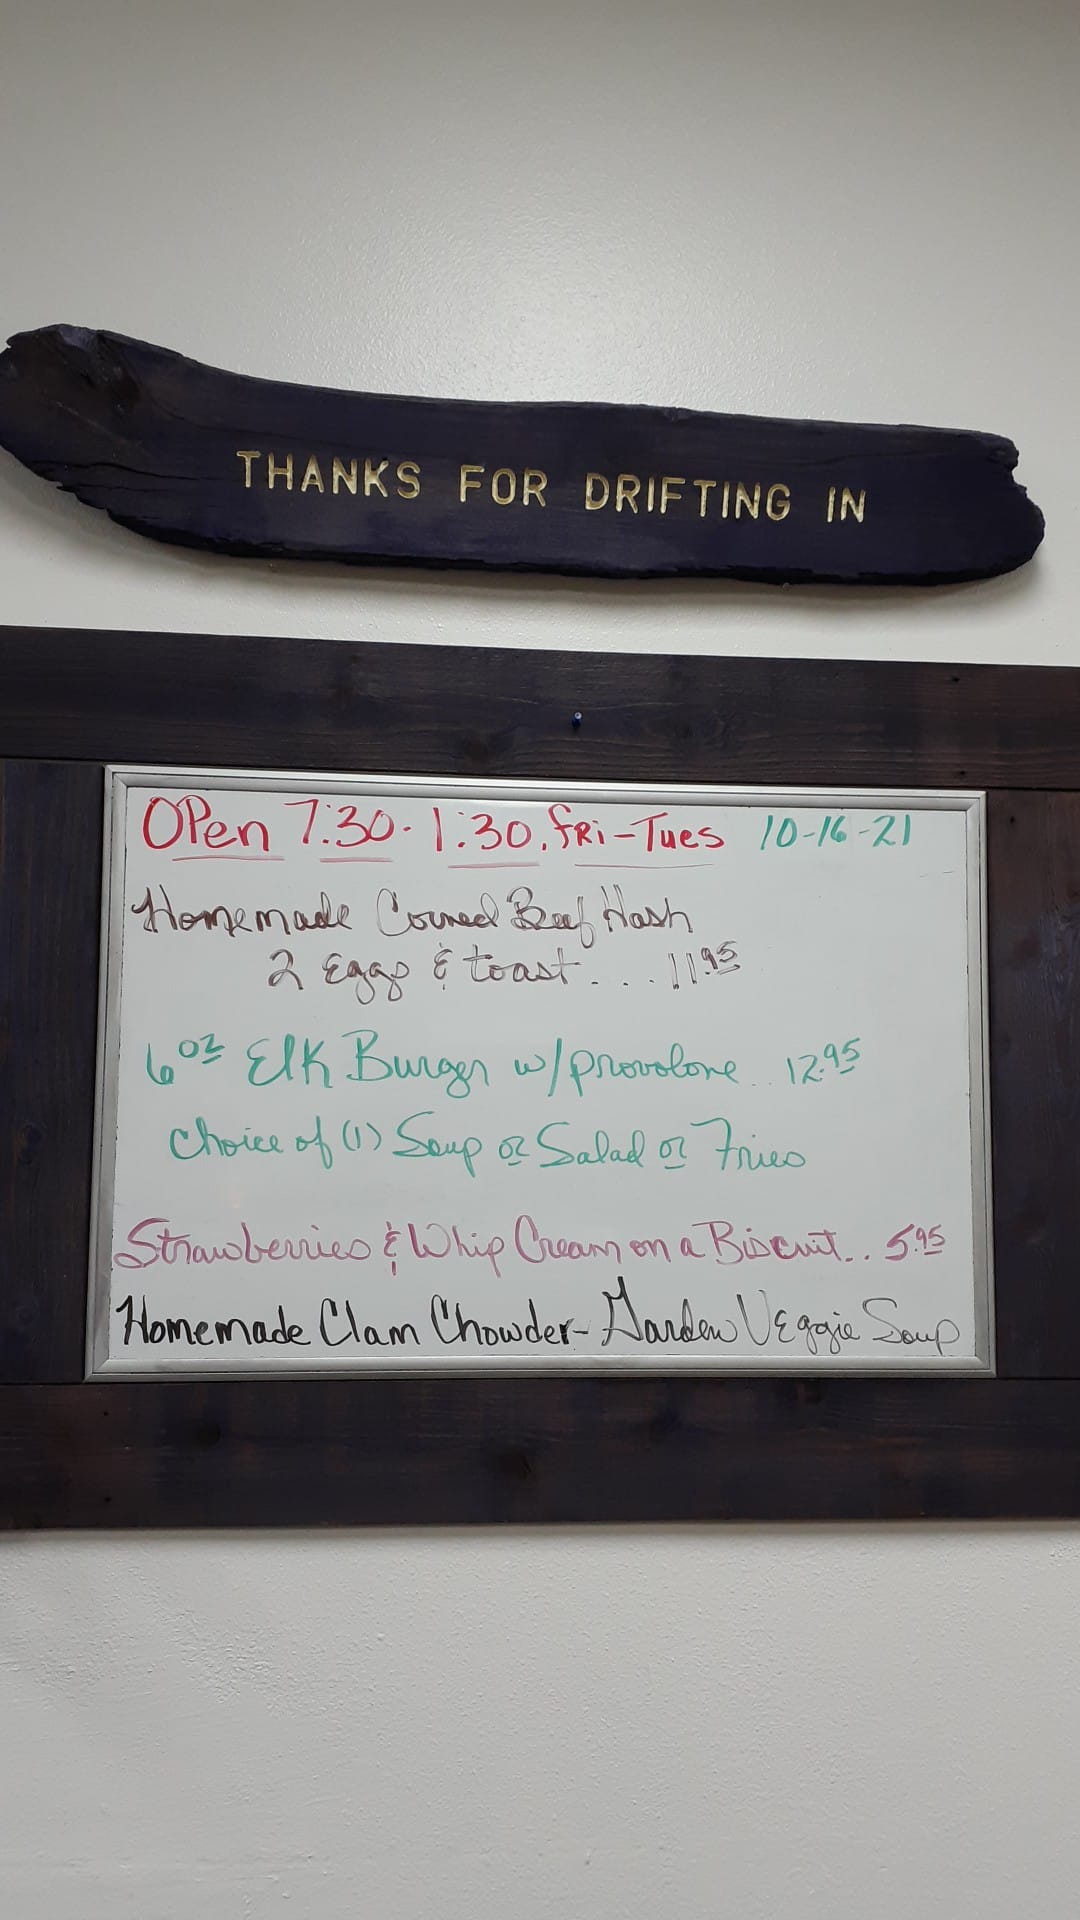 THANKS FOR DRIFTING IN
OPen 7:30-1:30. fRi-Tues 10-16-21
Homemade Corned Beef Hash
2 Eggs & toast... 11.95
6 oz Elk Burger w/provolone.. 12.95
Choice of (1) Soup or Salad or Fries
Strawberries & Whip Cream on a Biscuit.. 5.95
Homemade Clam Chowder- Garden Veggie Soup